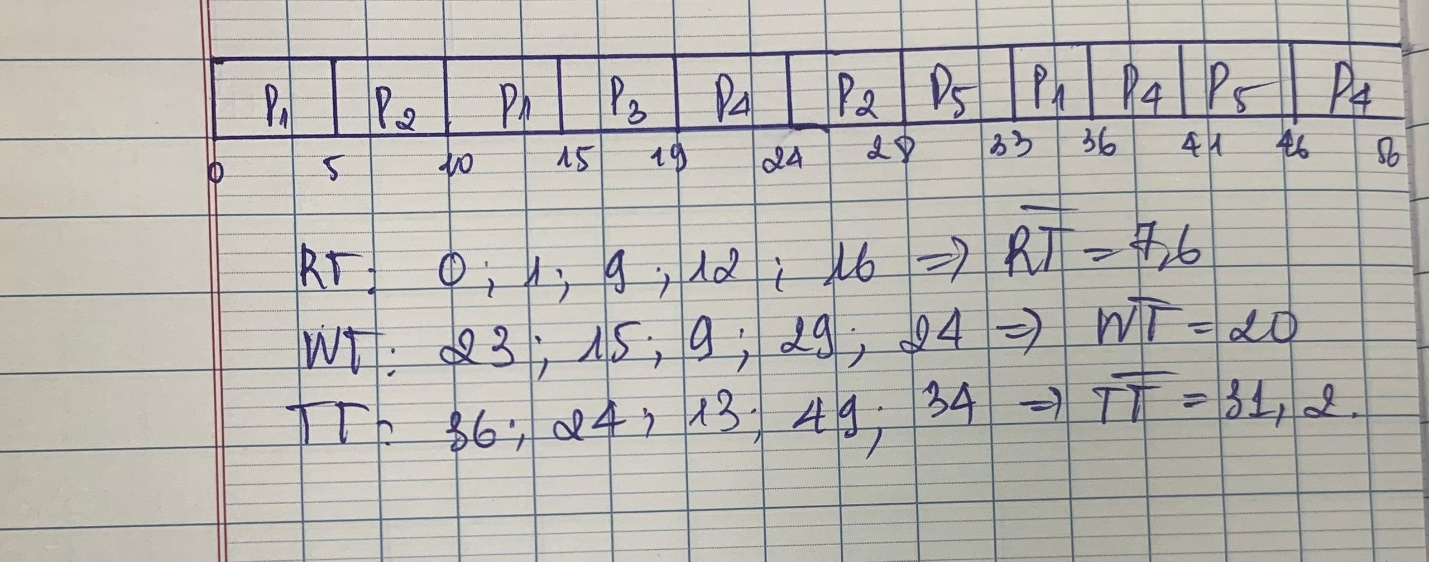 P1 P2 P1 P3 P4 P2 P5 P1 P4 P5 P4
0 5 10 15 19 24 28 33 36 41 46 56
RT: 0; 1; 9; 12; 16 => RT = 7,6
WT: 23; 15; 9; 29; 24 => WT = 20
TT: 36; 24; 13; 49; 34 => TT = 31,2.